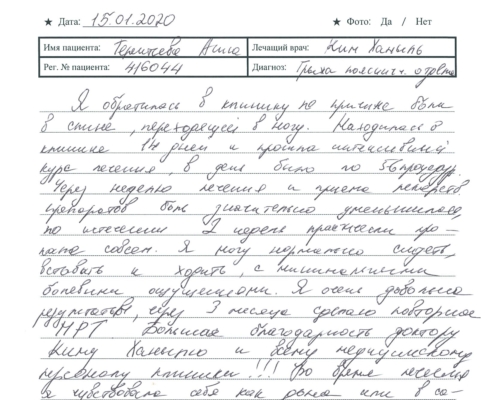 ★ Дата: 15.01.2020 ★ Фото: Да / Нет
Имя пациента: Анна Лечащий врач: Ким Ханиль
Рег. № пациента: 416044 Диагноз: Грыжа пояснич. отдела
Я обратилась в клинику по причине боли
в спине, переходящей в ногу. Находилась в
клинике 14 дней и прошла интенсивный
курс лечения, в день было по 5 процедур.
Через неделю лечения и приема лекарств
препаратов боль значительно уменьшилась,
по истечении 2 недель практически про-
пала совсем. Я могу нормально сидеть,
вставать и ходить, с минимальными
болевыми ощущениями. Я очень довольна
результатом, через 3 месяца сделаю повторное
МРТ. Большая благодарность доктору
Киму Ханилю и всему медицинскому
персоналу клиники!!! Во время лечения
я чувствовала себя как дома или в са-